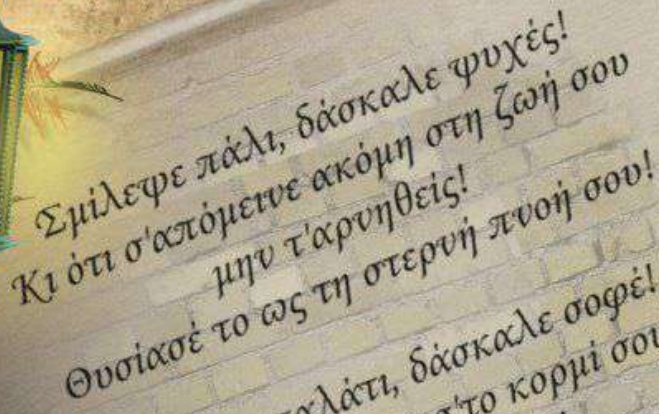 Σμίλεψε πάλι, δάσκαλε ψυχές!
Κι ότι σ'απόμεινε ακόμη στη ζωή σου
μην τ'αρνηθείς!
Θυσίασέ το ως τη στερνή πνοή σου!
δάσκαλε σοφέ!
κορμί